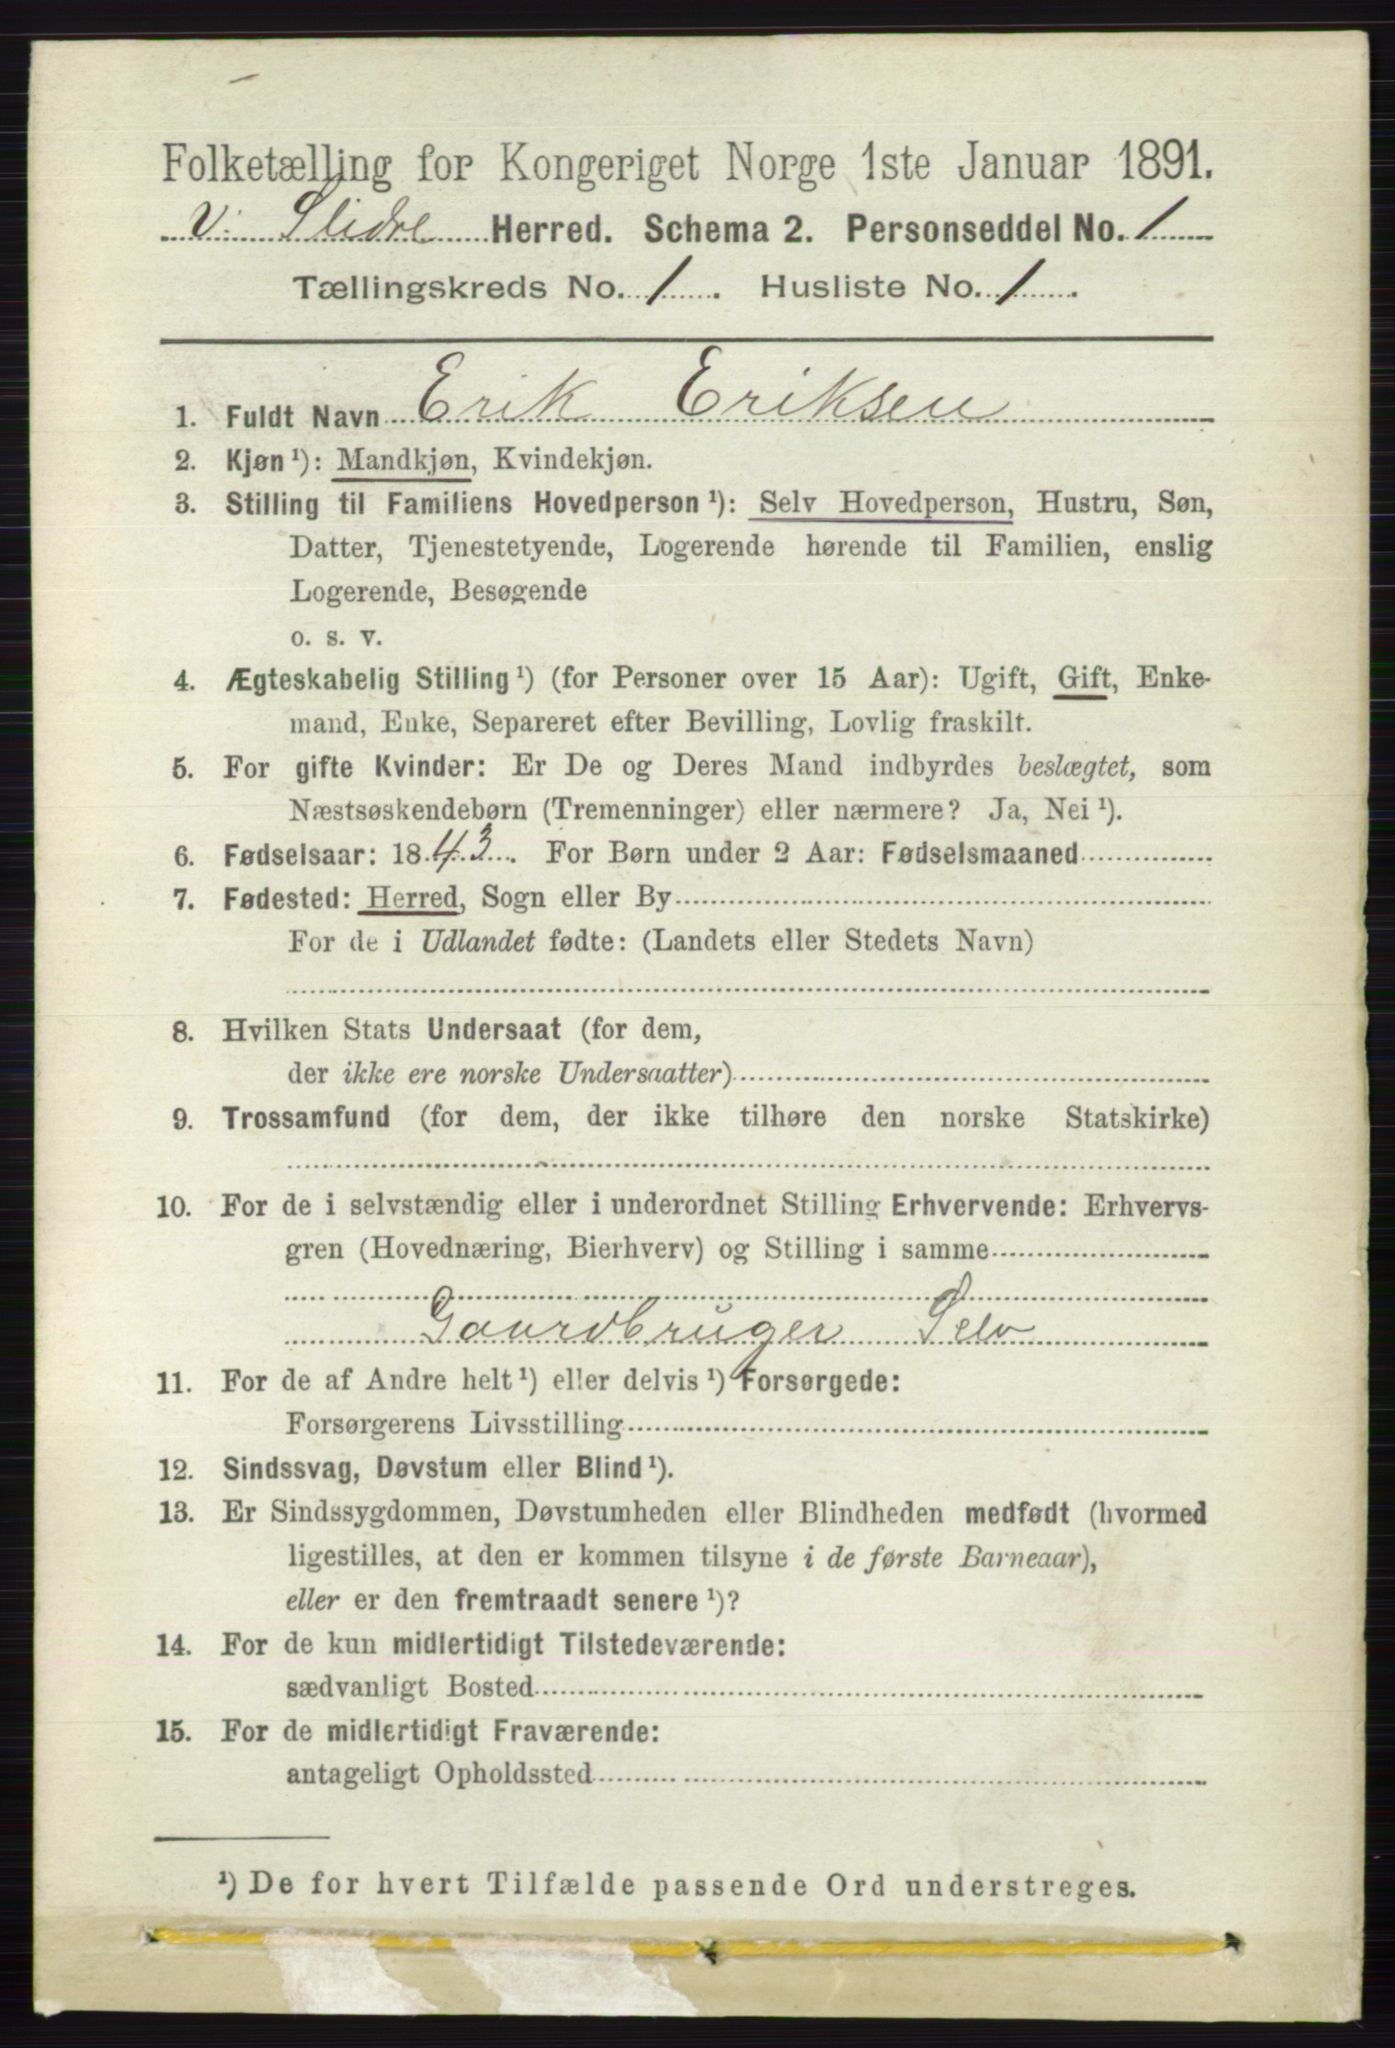 Folketælling for Kongeriget Norge 1ste Januar 1891.
V. Slidre Herred. Schema 2. Personseddel No. 1
Tællingskreds No. 1. Husliste No. 1.
1. Fuldt Navn Erik Eriksen
2. Kjøn¹): Mandkjøn, Kvindekjøn.
3. Stilling til Familiens Hovedperson¹): Selv Hovedperson, Hustru, Søn,
Datter, Tjenestetyende, Logerende hørende til Familien, enslig
Logerende, Besøgende
o. s. v.
4. Ægteskabelig Stilling¹) (for Personer over 15 Aar): Ugift, Gift, Enke-
mand, Enke, Separeret efter Bevilling, Lovlig fraskilt.
5. For gifte Kvinder: Er De og Deres Mand indbyrdes beslægtet, som
Næstsøskendebørn (Tremenninger) eller nærmere? Ja, Nei¹).
6. Fødselsaar: 1843. For Børn under 2 Aar: Fødselsmaaned
7. Fødested: Herred, Sogn eller By
For de i Udlandet fødte: (Landets eller Stedets Navn)
8. Hvilken Stats Undersaat (for dem,
der ikke ere norske Undersaatter)
9. Trossamfund (for dem, der ikke tilhøre den norske Statskirke)
10. For de i selvstændig eller i underordnet Stilling Erhvervende: Erhvervs-
gren (Hovednæring, Bierhverv) og Stilling i samme
Gaardbruger Selv
11. For de af Andre helt¹) eller delvis¹) Forsørgede:
Forsørgerens Livsstilling
12. Sindssvag, Døvstum eller Blind¹).
13. Er Sindssygdommen, Døvstumheden eller Blindheden medfødt (hvormed
ligestilles, at den er kommen tilsyne i de første Barneaar),
eller er den fremtraadt senere¹)?
14. For de kun midlertidigt Tilstedeværende:
sædvanligt Bosted
15. For de midlertidigt Fraværende:
antageligt Opholdssted
¹) De for hvert Tilfælde passende Ord understreges.